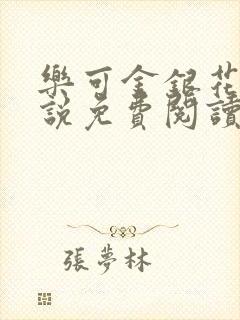 樂可金銀花
說免費閱讀
張夢林